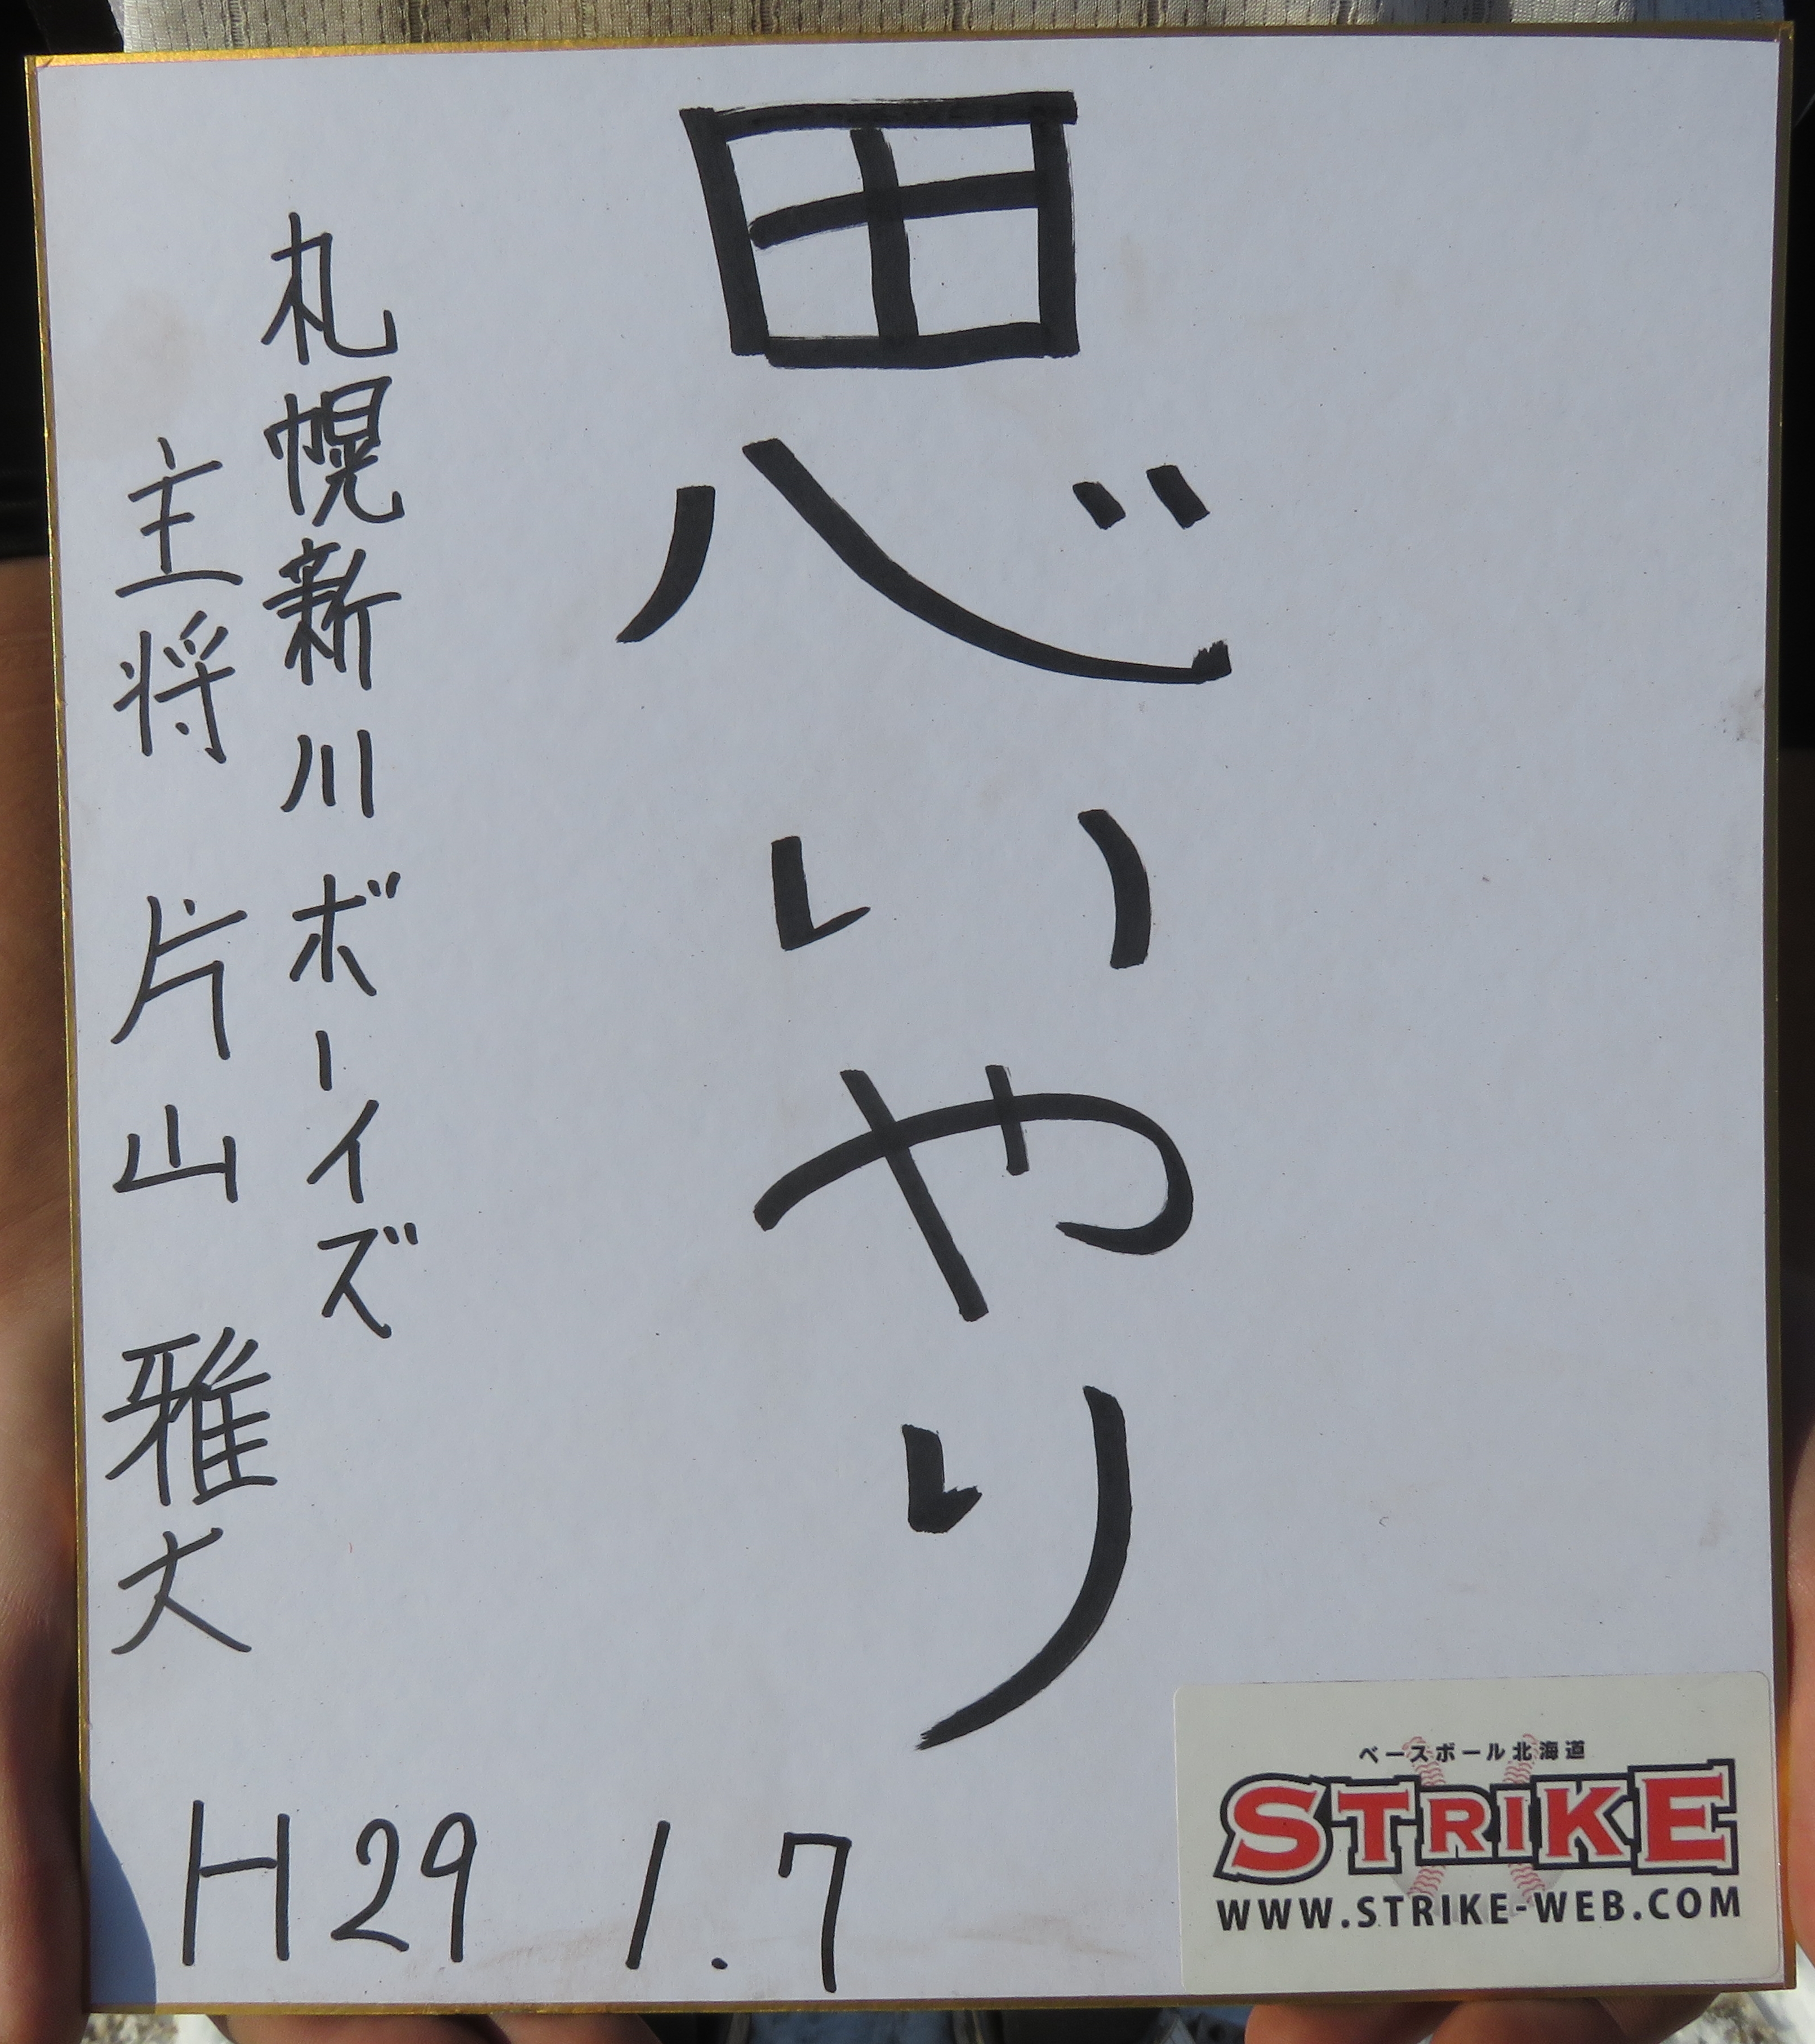 思いやり
札幌新川ボーイズ
主将 片山 雅大
H29 1.7
ベースボール北海道
STRIKE
WWW.STRIKE-WEB.COM